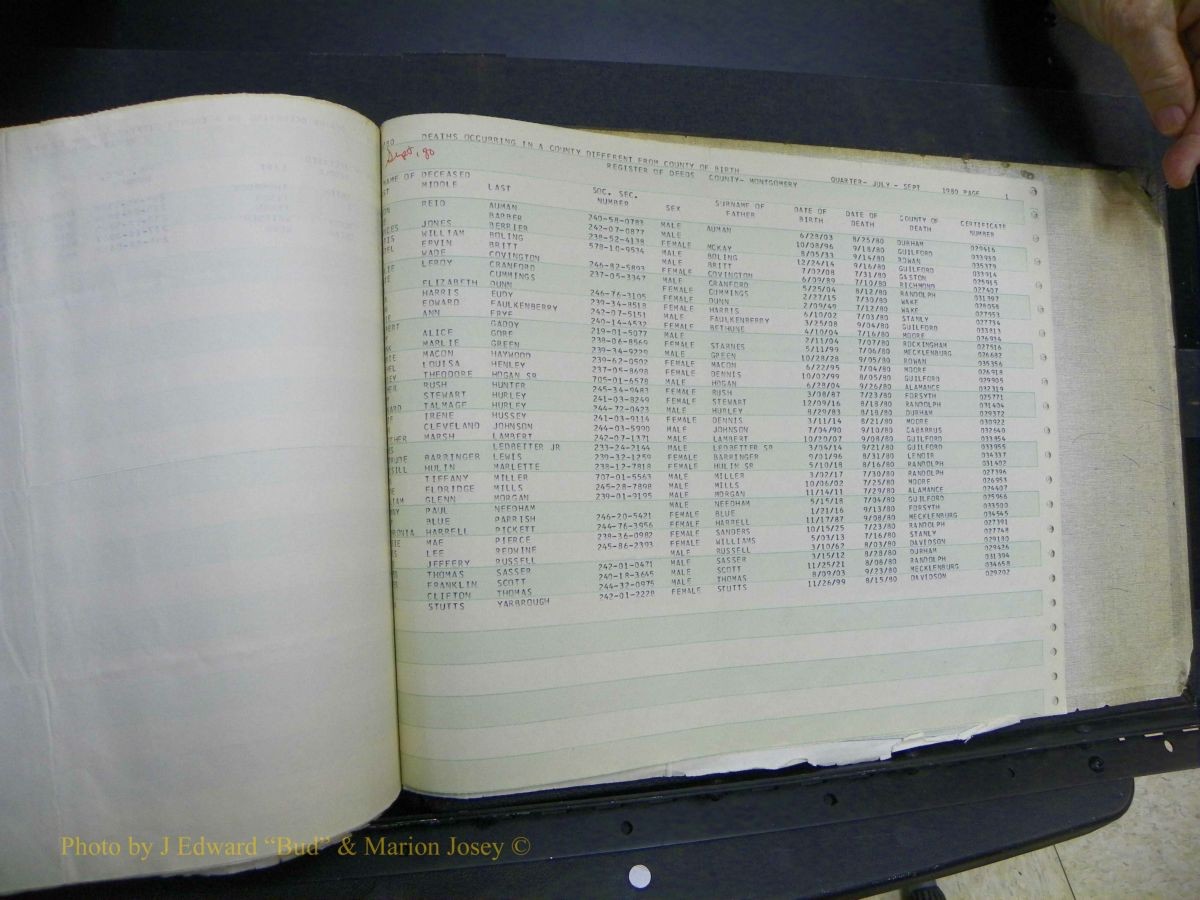 DEATHS OCCURRING IN A COUNTY DIFFERENT FROM COUNTY OF BIRTH
Sept, 80
REGISTER OF DEEDS COUNTY- MONTGOMERY QUARTER- JULY - SEPT 1980 PAGE 1
NAME OF DECEASED SOC. SEC. SURNAME OF DATE OF DATE OF COUNTY OF CERTIFICATE
MIDDLE LAST NUMBER SEX FATHER BIRTH DEATH DEATH NUMBER
REID AUMAN 240-58-0783 MALE AUMAN 6/28/03 8/25/80 DURHAM 029416
BARBER 242-07-0877 MALE 10/08/96 9/18/80 GUILFORD 033950
JONES BERRIER 238-52-4138 FEMALE MCKAY 8/05/33 9/14/80 ROWAN 035379
WILLIAM BOLING 578-10-9534 MALE BOLING 12/24/14 9/16/80 GUILFORD 033914
ERVIN BRITT MALE BRITT 7/02/08 7/31/80 GASTON 025915
WADE COVINGTON 246-82-5893 FEMALE COVINGTON 6/09/89 7/10/80 RICHMOND 027407
LEROY CRANFORD 237-05-3347 MALE CRANFORD 5/25/04 8/12/80 RANDOLPH 031397
CUMMINGS FEMALE CUMMINGS 2/27/15 7/30/80 WAKE 028058
ELIZABETH DUNN 246-76-3105 FEMALE DUNN 2/09/49 7/12/80 WAKE 027953
HARRIS EUDY 239-34-8518 FEMALE HARRIS 6/10/02 7/03/80 STANLY 027734
EDWARD FAULKENBERRY 242-07-5151 MALE FAULKENBERRY 3/25/08 9/04/80 GUILFORD 033813
ANN FRYE 240-14-4532 FEMALE BETHUNE 4/10/04 7/16/80 MOORE 026934
GADDY 219-01-5077 MALE 2/11/04 7/07/80 ROCKINGHAM 027516
ALICE GORE 238-06-8569 FEMALE STARNES 5/11/99 7/06/80 MECKLENBURG 026682
MARLIE GREEN 239-34-9220 MALE GREEN 10/28/28 9/05/80 ROWAN 035356
MACON HAYWOOD 239-62-0502 FEMALE MACON 6/22/95 7/04/80 MOORE 026918
LOUISA HENLEY 237-05-8698 FEMALE DENNIS 10/02/99 8/05/80 GUILFORD 029905
THEODORE HOGAN SR 705-01-6578 MALE HOGAN 6/28/04 9/26/80 ALAMANCE 032319
RUSH HUNTER 245-34-9483 FEMALE RUSH 3/08/87 7/23/80 FORSYTH 025771
STEWART HURLEY 241-03-8249 FEMALE STEWART 12/09/16 8/18/80 RANDOLPH 031404
TALMAGE HURLEY 244-72-0423 MALE HURLEY 8/29/83 8/18/80 DURHAM 029372
IRENE HUSSEY 241-03-9114 FEMALE DENNIS 3/11/14 8/21/80 MOORE 030922
CLEVELAND JOHNSON 244-03-5990 MALE JOHNSON 7/04/90 9/10/80 CABARRUS 032640
MARSH LAMBERT 242-07-1371 MALE LAMBERT 10/20/07 9/08/80 GUILFORD 033854
LEDBETTER JR 233-24-2144 MALE LEDBETTER SR 3/04/14 9/21/80 GUILFORD 033955
BARRINGER LEWIS 239-32-1259 FEMALE BARRINGER 9/01/96 8/31/80 LENOIR 034337
HULIN MARLETTE 238-12-7818 FEMALE HULIN SR 5/10/18 8/16/80 RANDOLPH 031402
TIFFANY MILLER 707-01-5563 MALE MILLER 3/02/17 7/30/80 RANDOLPH 027396
ELDRIDGE MILLS 245-28-7898 MALE MILLS 10/06/02 7/25/80 MOORE 026953
GLENN MORGAN 239-01-9195 MALE MORGAN 11/14/11 7/29/80 ALAMANCE 024407
PAUL NEEDHAM MALE NEEDHAM 5/15/18 7/04/80 GUILFORD 025966
BLUE PARRISH 246-20-5421 FEMALE BLUE 1/21/16 9/13/80 FORSYTH 033500
HARRELL PICKETT 244-76-3956 FEMALE HARRELL 11/17/87 9/08/80 MECKLENBURG 034545
MAE PIERCE 238-36-0982 FEMALE SANDERS 10/15/25 7/23/80 RANDOLPH 027391
LEE REDWINE 245-86-2393 FEMALE WILLIAMS 5/03/13 7/16/80 STANLY 027748
JEFFERY RUSSELL MALE RUSSELL 3/10/62 8/03/80 DAVIDSON 029180
THOMAS SASSER 242-01-0471 MALE SASSER 3/15/12 8/28/80 DURHAM 029426
FRANKLIN SCOTT 240-18-3645 MALE SCOTT 11/25/21 8/08/80 RANDOLPH 031394
CLIFTON THOMAS 244-32-0975 MALE THOMAS 8/09/03 9/23/80 MECKLENBURG 034658
STUTTS YARBROUGH 242-01-2220 FEMALE STUTTS 11/26/99 8/15/80 DAVIDSON 029202
Photo by J Edward “Bud” & Marion Josey ©